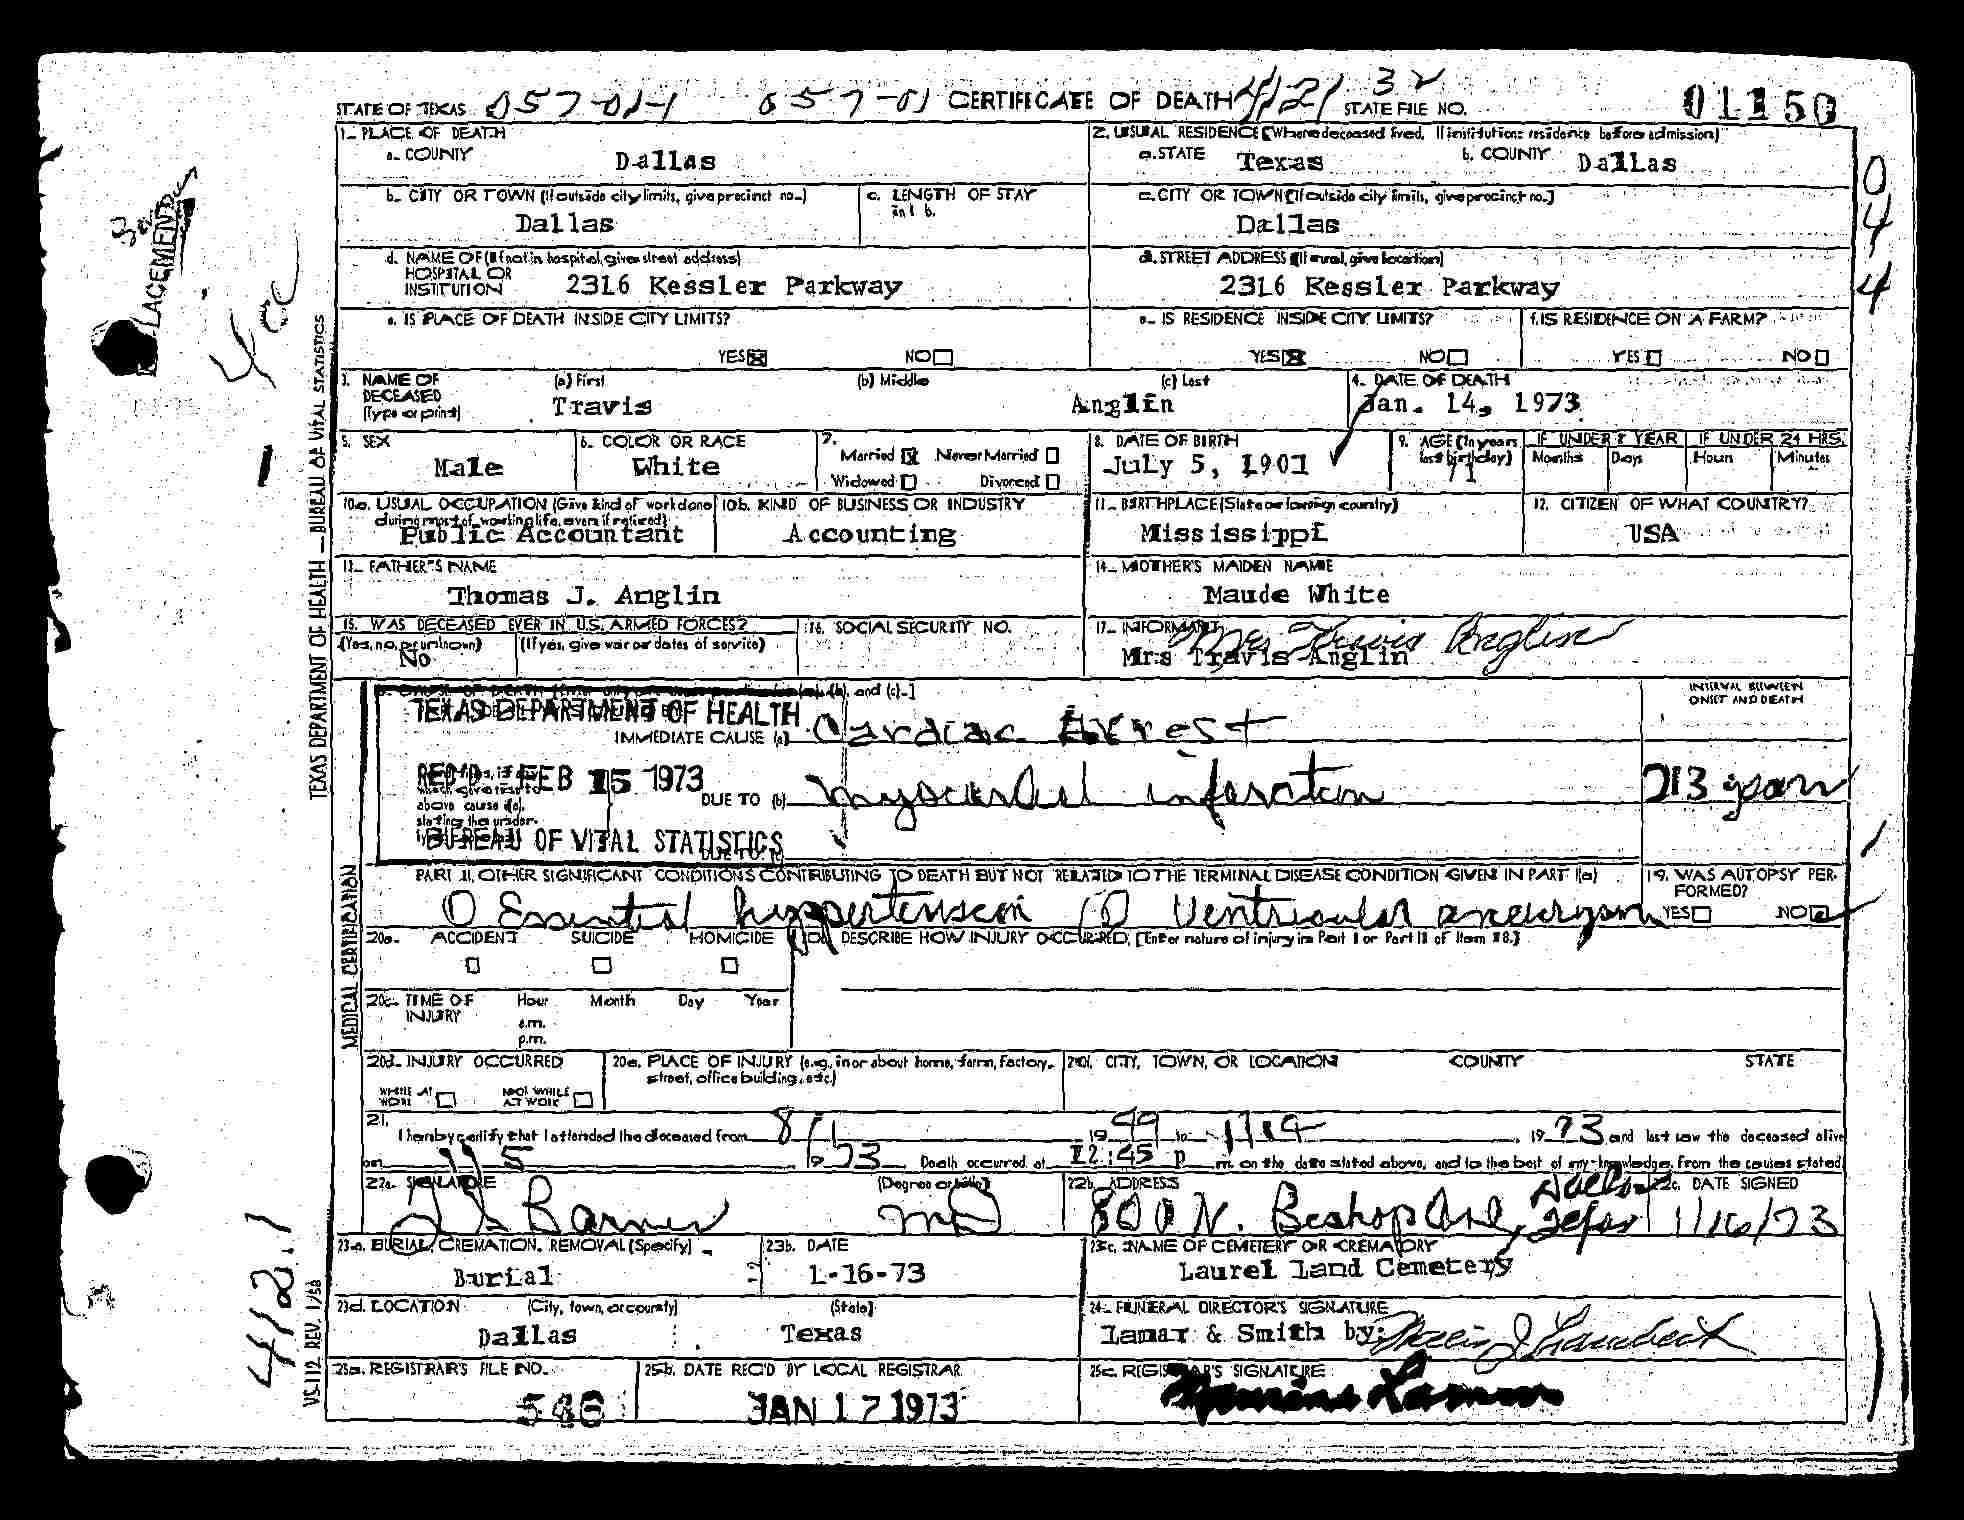 STATE OF TEXAS 057-01-1 057-01 CERTIFICATE OF DEATH 4121 32 STATE FILE NO. 01150
1. PLACE OF DEATH
a. COUNTY Dallas
2. USUAL RESIDENCE (Where deceased lived. If institution: residence before admission)
a. STATE Texas b. COUNTY Dallas
b. CITY OR TOWN (If outside city limits, give precinct no.) Dallas
c. LENGTH OF STAY in 1 b.
c. CITY OR TOWN (If outside city limits, give precinct no.) Dallas
d. NAME OF (If not in hospital, give street address) HOSPITAL OR INSTITUTION 2316 Kessler Parkway
d. STREET ADDRESS (If rural, give location) 2316 Kessler Parkway
e. IS PLACE OF DEATH INSIDE CITY LIMITS? YES NO
e. IS RESIDENCE INSIDE CITY LIMITS? YES NO
f. IS RESIDENCE ON A FARM? YES NO
044
3. NAME OF DECEASED (Type or print) (a) First Travis (b) Middle (c) Last Anglin
4. DATE OF DEATH Jan. 14, 1973
5. SEX Male
6. COLOR OR RACE White
7. Married Never Married Widowed Divorced
8. DATE OF BIRTH July 5, 1901
9. AGE (In years last birthday) 71
IF UNDER 1 YEAR Months Days
IF UNDER 24 HRS. Hours Minutes
10a. USUAL OCCUPATION (Give kind of work done during most of working life, even if retired) Public Accountant
10b. KIND OF BUSINESS OR INDUSTRY Accounting
11. BIRTHPLACE (State or foreign country) Mississippi
12. CITIZEN OF WHAT COUNTRY? USA
13. FATHER'S NAME Thomas J. Anglin
14. MOTHER'S MAIDEN NAME Maude White
15. WAS DECEASED EVER IN U.S. ARMED FORCES?
(Yes, no, or unknown) No (If yes, give war or dates of service)
16. SOCIAL SECURITY NO.
17. INFORMANT Mrs Travis Anglin
Mrs Travis Anglin
(b), and (c).]
INTERVAL BETWEEN ONSET AND DEATH
TEXAS DEPARTMENT OF HEALTH
IMMEDIATE CAUSE (a) Cardiac Arrest
REC'D FEB 15 1973
which gave rise to above cause (a), stating the under-
DUE TO (b) myocardial infarction 13 years
BUREAU OF VITAL STATISTICS
DUE TO (c)
PART II. OTHER SIGNIFICANT CONDITIONS CONTRIBUTING TO DEATH BUT NOT RELATED TO THE TERMINAL DISEASE CONDITION GIVEN IN PART I(a)
① Essential hyppertension ② Ventricular aneurysm
19. WAS AUTOPSY PERFORMED? YES NO
20a. ACCIDENT SUICIDE HOMICIDE
DESCRIBE HOW INJURY OCCURRED. (Enter nature of injury in Part I or Part II of Item 18.)
20c. TIME OF INJURY Hour Month Day Year
a.m.
p.m.
20d. INJURY OCCURRED
WHILE AT WORK NOT WHILE AT WORK
20e. PLACE OF INJURY (e.g., in or about home, farm, factory, street, office building, etc.)
20f. CITY, TOWN, OR LOCATION COUNTY STATE
21. I hereby certify that I attended the deceased from 8/1 1949 to 1/14 1973 and last saw the deceased alive
on 1/5 1973 Death occurred at 12:45 p m. on the date stated above, and to the best of my knowledge, from the causes stated.
22a. SIGNATURE Barnes (Degree or title) MD
22b. ADDRESS 800 N. Bishop Ave, Dallas Texas
22c. DATE SIGNED 1/16/73
23a. BURIAL, CREMATION, REMOVAL (Specify) Burial
23b. DATE 1-16-73
23c. NAME OF CEMETERY OR CREMATORY Laurel Land Cemetery
23d. LOCATION (City, town, or county) Dallas (State) Texas
24. FUNERAL DIRECTOR'S SIGNATURE Lamar & Smith by:
25a. REGISTRAR'S FILE NO. 546
25b. DATE REC'D BY LOCAL REGISTRAR JAN 17 1973
25c. REGISTRAR'S SIGNATURE
TEXAS DEPARTMENT OF HEALTH — BUREAU OF VITAL STATISTICS
MEDICAL CERTIFICATION
VS-112 REV. 1/58
412.1